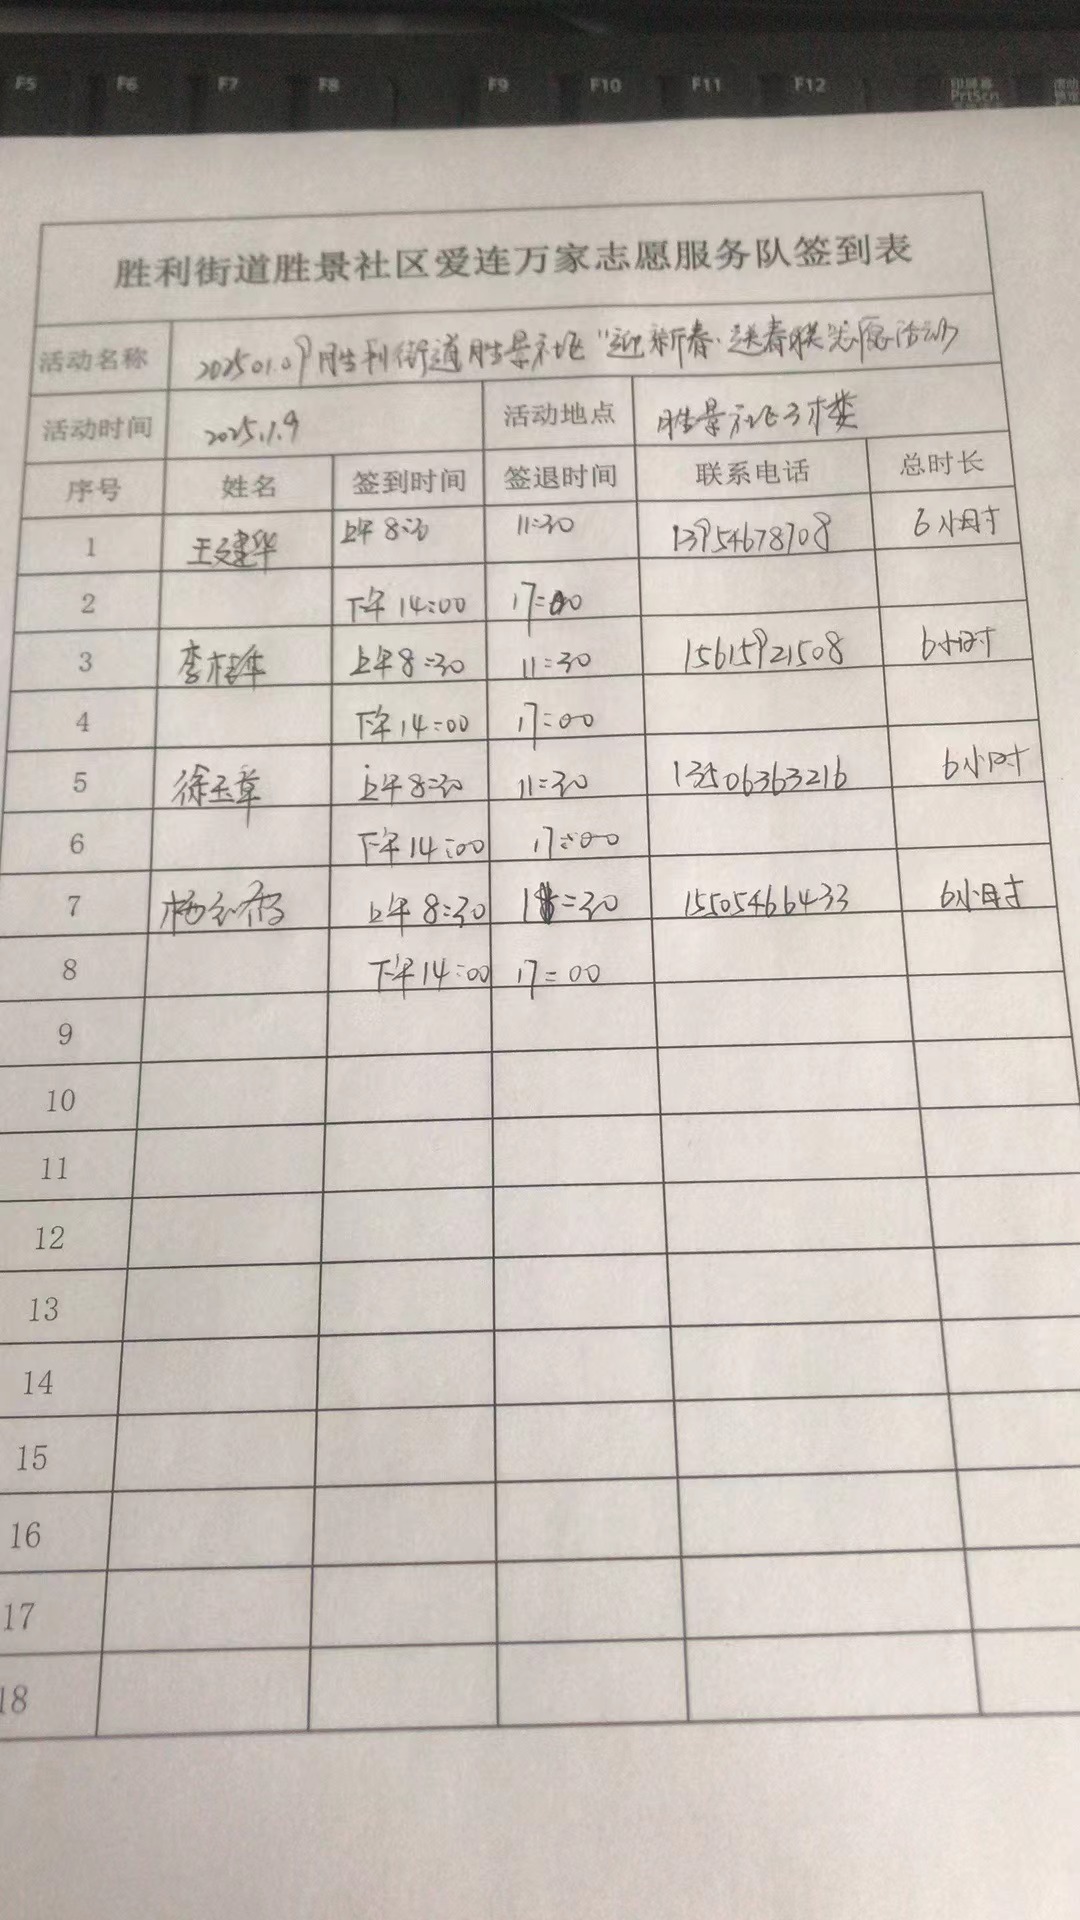 F5 F6 F7 F8 F9 F10 F11 F12 PrtScn
胜利街道胜景社区爱连万家志愿服务队签到表
活动名称 2025.01.09胜利街道胜景社区"迎新春·送春联志愿活动
活动时间 2025.1.9 活动地点 胜景社区3楼
序号 姓名 签到时间 签退时间 联系电话 总时长
1 王建华 上午8:30 11:30 13954678708 6小时
2 下午14:00 17:00
3 李桂华 上午8:30 11:30 15615921508 6小时
4 下午14:00 17:00
5 徐玉章 上午8:30 11:30 13506363216 6小时
6 下午14:00 17:00
7 上午8:30 11:30 15505466433 6小时
8 下午14:00 17:00
9
10
11
12
13
14
15
16
17
18